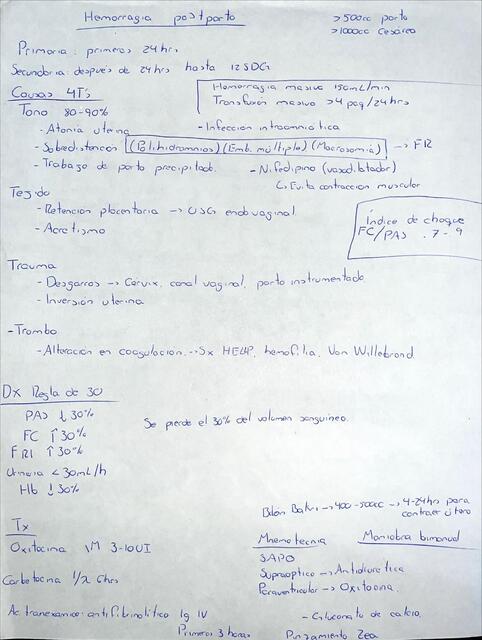 Hemorragia postparto
>500cc parto
>1000cc cesárea
Primaria: primeros 24hrs
Secundaria: después de 24hrs hasta 12SDG
Causas 4T's
Hemorragia masiva 150mL/min
Transfusión masiva >4paq/24hrs
Tono 80-90%
- Atonía uterina
- Infección intraamniótica
- Sobredistención (Polihidramnios) (Emb. múltiple) (Macrosomía) → FR
- Trabajo de parto precipitado.
- Nifedipino (vasodilatador)
↳ Evita contracción muscular
Tejido
- Retención placentaria → USG endovaginal
- Acretismo
Índice de choque
FC/PAS .7-.9
Trauma
- Desgarros → Cérvix, canal vaginal, parto instrumentado
- Inversión uterina
- Trombo
- Alteración en coagulación → Sx HELLP, hemofilia, Von Willebrand
Dx Regla de 30
PAS ↓ 30%
FC ↑ 30%
FR ↑ 30%
Urinaria < 30mL/h
Hb ↓ 30%
Se pierde el 30% del volumen sanguíneo.
Balón Bakri → 400-500cc → 4-24hrs para
contraer útero
Tx
Oxitocina IM 3-10UI
Carbetocina 1/2 6hrs
Ac tranexámico: antifibrinolítico 1g IV
Primeras 3 horas
Mnemotecnia
Maniobra bimanual
SAPO
Supraóptico → Antidiurética
Paraventricular → Oxitocina.
- Gluconato de calcio.
Pinzamiento Zea